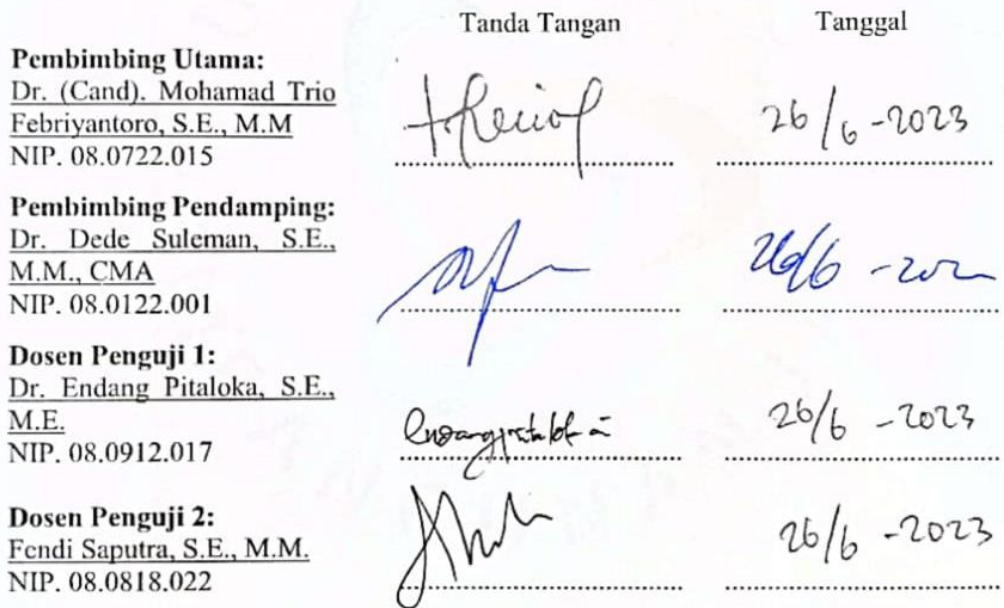 Tanda Tangan Tanggal
Pembimbing Utama:
Dr. (Cand). Mohamad Trio
Febriyantoro, S.E., M.M
NIP. 08.0722.015
26/6-2023
Pembimbing Pendamping:
Dr. Dede Suleman, S.E.,
M.M., CMA
NIP. 08.0122.001
26/6
Dosen Penguji 1:
Dr. Endang Pitaloka, S.E.,
M.E.
NIP. 08.0912.017
26/6 - 2023
Dosen Penguji 2:
Fendi Saputra, S.E., M.M.
NIP. 08.0818.022
26/6 - 2023